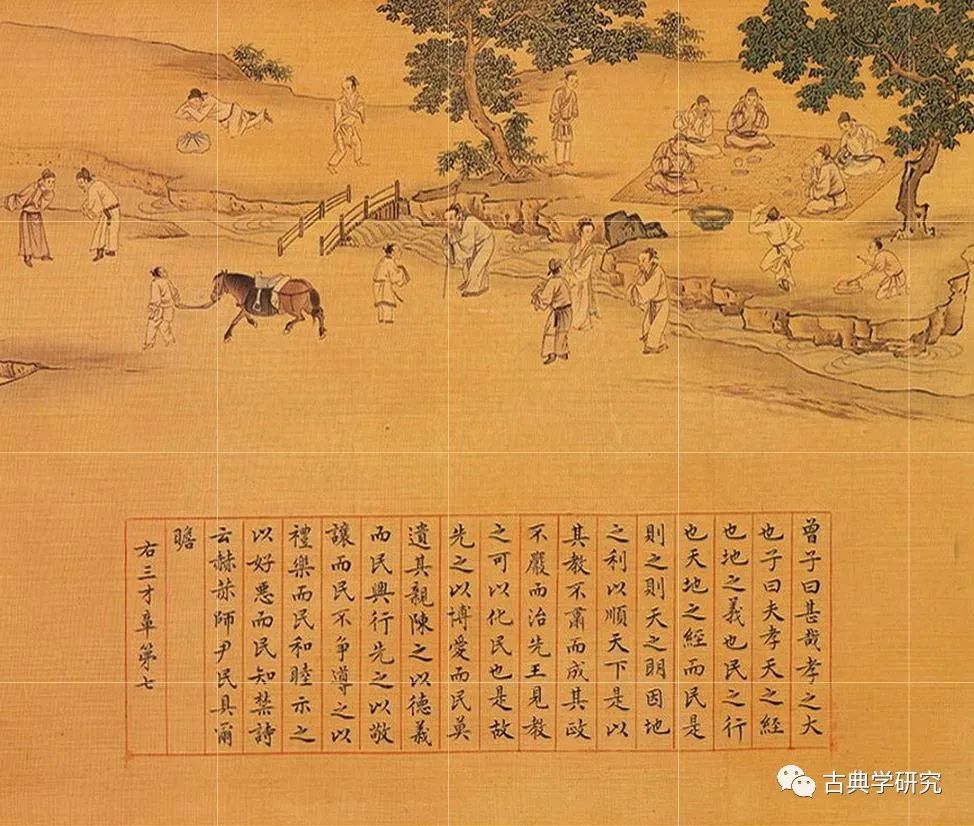 曾子曰甚哉孝之大
也子曰夫孝天之經
也地之義也民之行
也天地之經而民是
則之則天之明因地
之利以順天下是以
其教不肅而成其政
不嚴而治先王見教
之可以化民也是故
先之以博愛而民莫
遺其親陳之以德義
而民興行先之以敬
讓而民不爭導之以
禮樂而民和睦示之
以好惡而民知禁詩
云赫赫師尹民具爾
瞻
右三才章第七
古典学研究